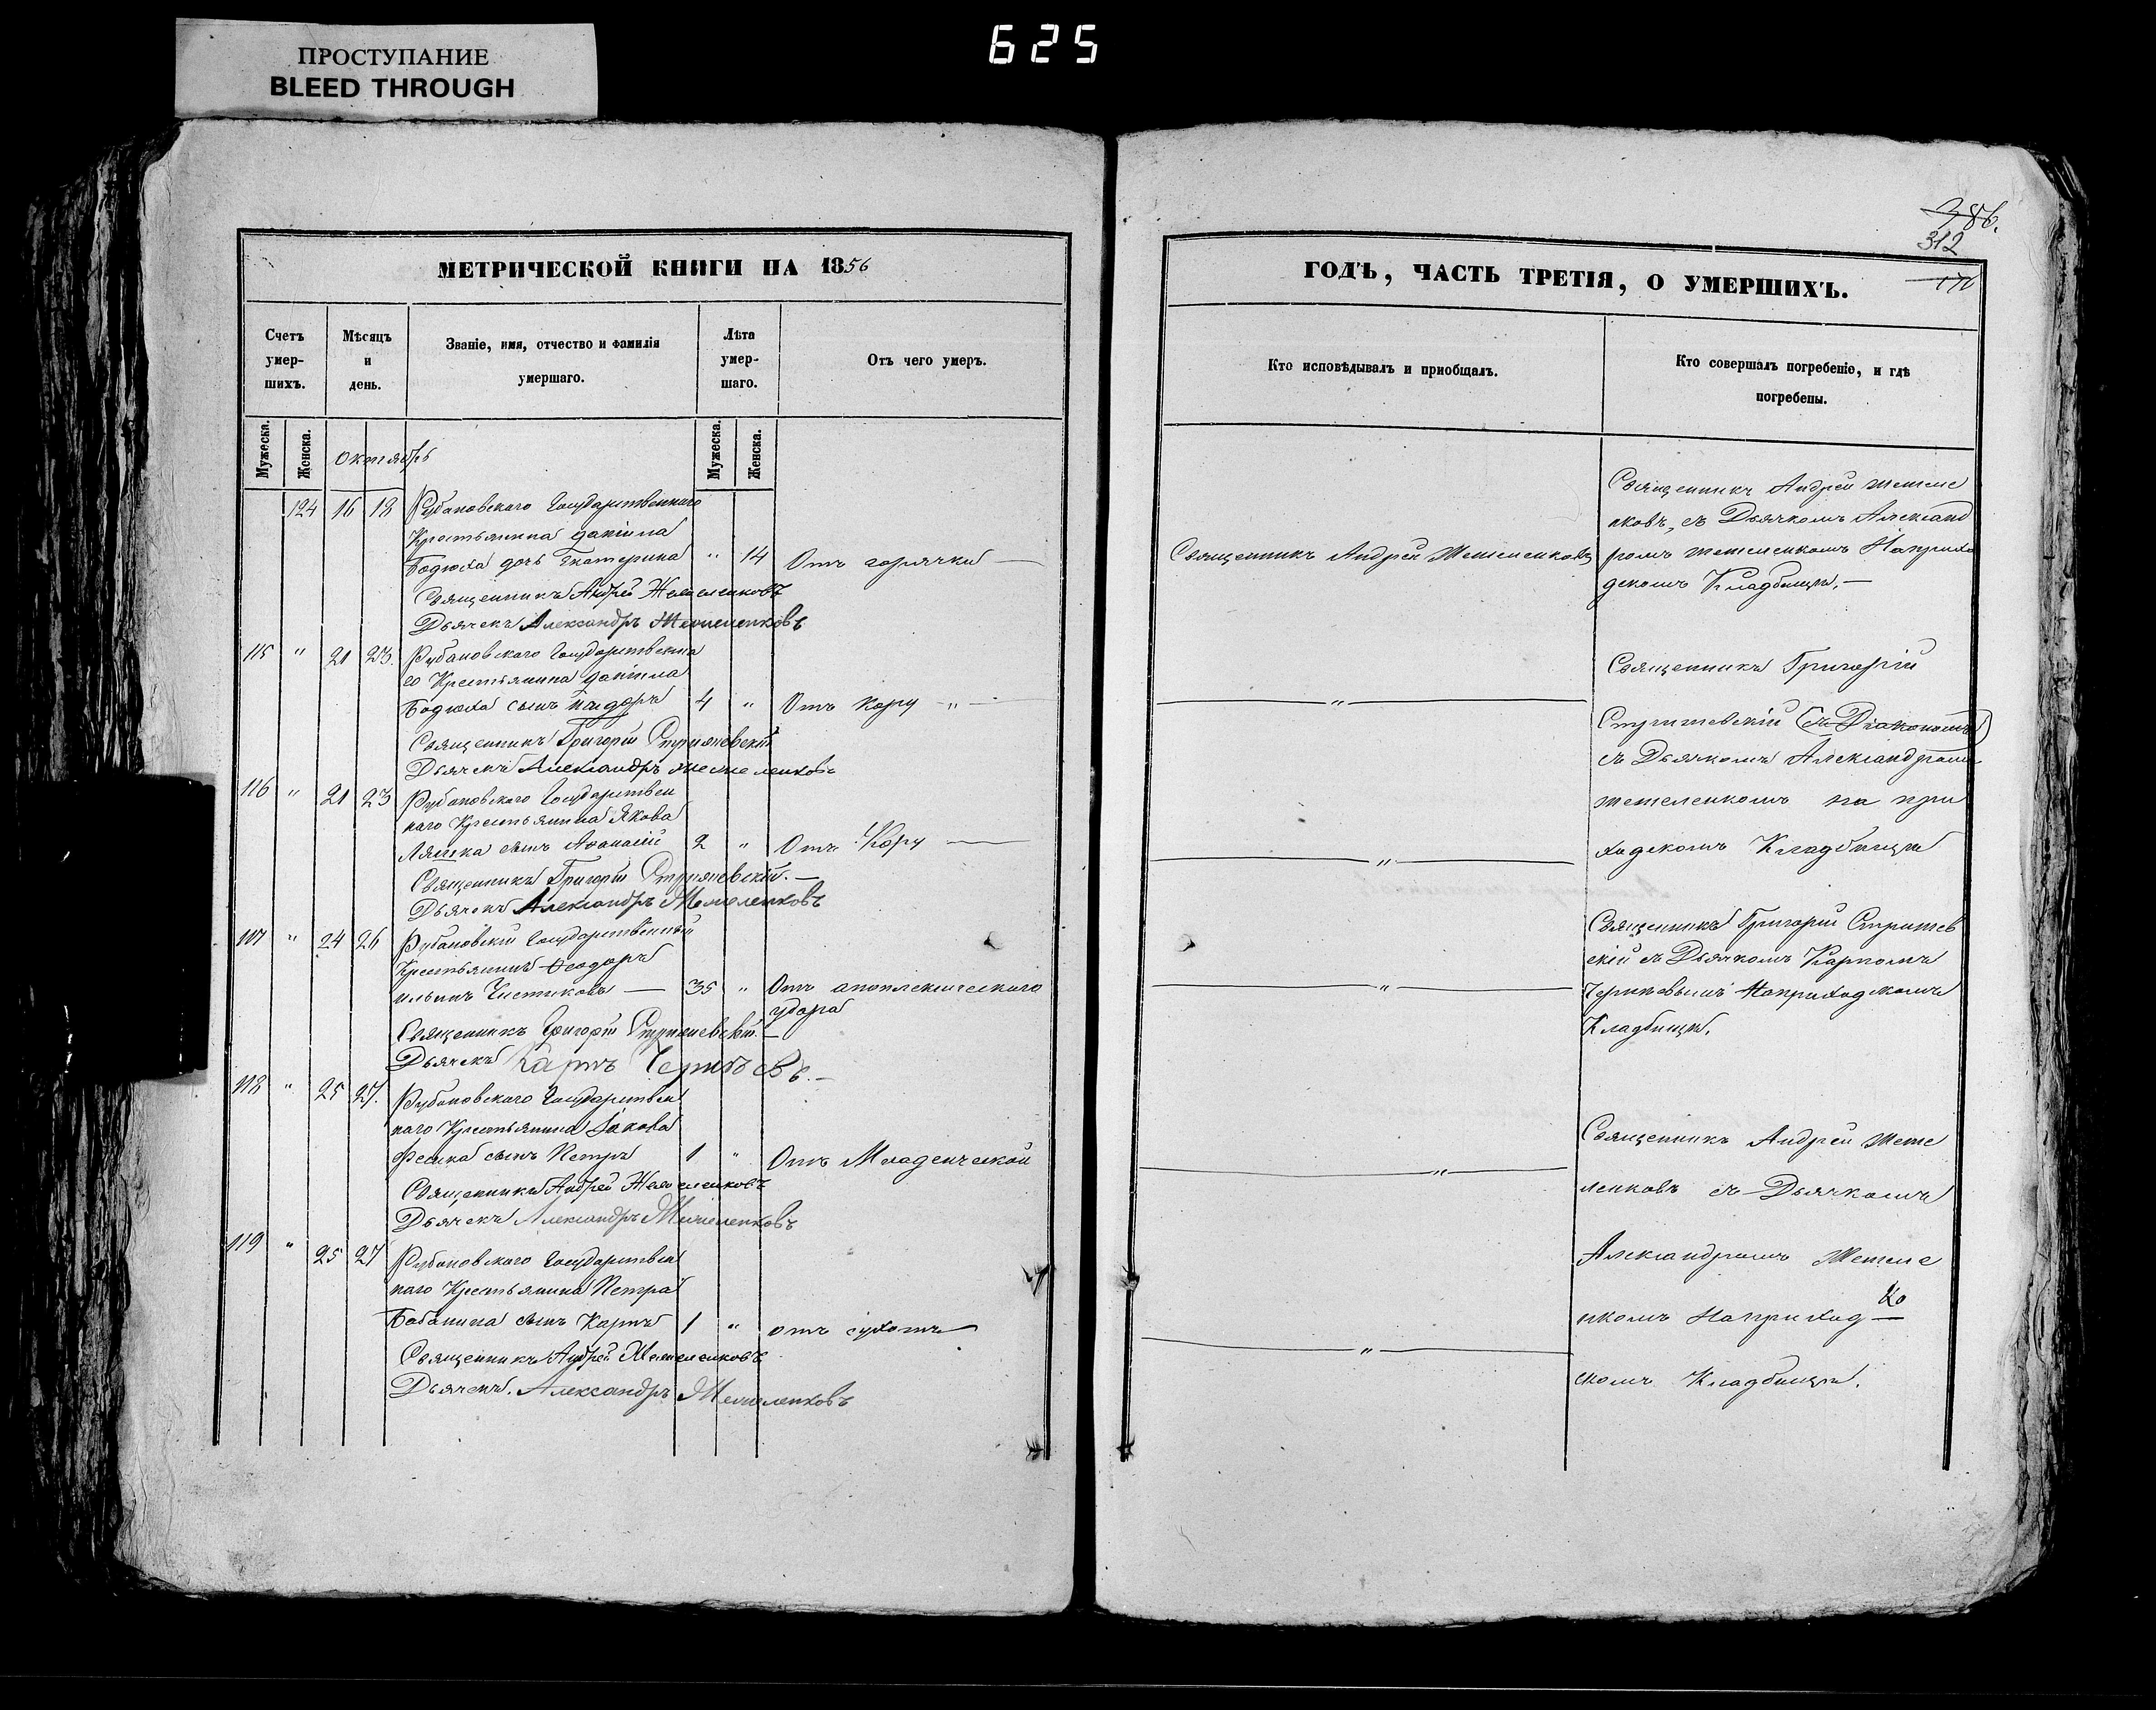 ПРОСТУПАНИЕ
BLEED THROUGH
625
МЕТРИЧЕСКОЙ КНИГИ НА 1856
Счетъ умер- шихъ.
Мѣсяцъ и день.
Званіе, имя, отчество и фамилія умершаго.
Лѣта умер- шаго.
Отъ чего умеръ.
Мужеска. Женска.
Октябрь
Мужеска. Женска.
124 16 18 Рубановскаго Государственнаго
Крестьянина Даніила
Бодюха дочь Екатерина " 14 Отъ горячки —
Священникъ Андрей Жемеленковъ
Дьячекъ Александръ Жемеленковъ
115 " 21 23. Рубановскаго Государственна
го Крестьянина Даніила
Бодюха сынъ 4 " Отъ Кору " —
Священникъ Григорій
Дьячекъ Александръ Жемеленковъ
116 " 21 23 Рубановскаго Государствен
наго Крестьянина Якова
Ляшка сынъ Аѳанасій 2 " Отъ Кору —
Священникъ Григорій
Дьячекъ Александръ Жемеленковъ
117 " 24 26 Рубановскій Государственный
Крестьянинъ Ѳеодоръ
Ильинъ Чистиковъ — 35 " Отъ апоплексическаго
удара
Священникъ Григорій
Дьячекъ Карпъ
118 " 25 27. Рубановскаго Государствен
наго Крестьянина Іакова
сынъ Петръ 1 " Отъ Младенческой
Священникъ Андрей Жемеленковъ
Дьячекъ Александръ Жемеленковъ
119 " 25 27 Рубановскаго Государствен
наго Крестьянина Петра
Бабанина сынъ Карпъ 1 " отъ сухотъ
Священникъ Андрей Жемеленковъ
Дьячекъ. Александръ Жемеленковъ
386.
312
ГОДЪ, ЧАСТЬ ТРЕТІЯ, О УМЕРШИХЪ.
Кто исповѣдывалъ и пріобщалъ.
Кто совершалъ погребеніе, и гдѣ
погребены.
Священникъ Андрей Жемеленковъ
Священникъ Андрей Жемеле
нковъ, съ Дьячкомъ Александ
ромъ Жемеленкомъ На прихо
дскомъ Кладбищѣ. —
— " —
Священникъ Григорій
(съ Діакономъ)
съ Дьячкомъ Александромъ
Жемеленкомъ на при
ходскомъ Кладбищѣ
— " —
Священникъ Григорій
съ Дьячкомъ Карпомъ
На приходскомъ
Кладбищѣ.
— " —
Священникъ Андрей Жеме
ленковъ съ Дьячкомъ
Александромъ Жемеле
нкомъ На приход
скомъ Кладбищѣ.
— " —
— " —